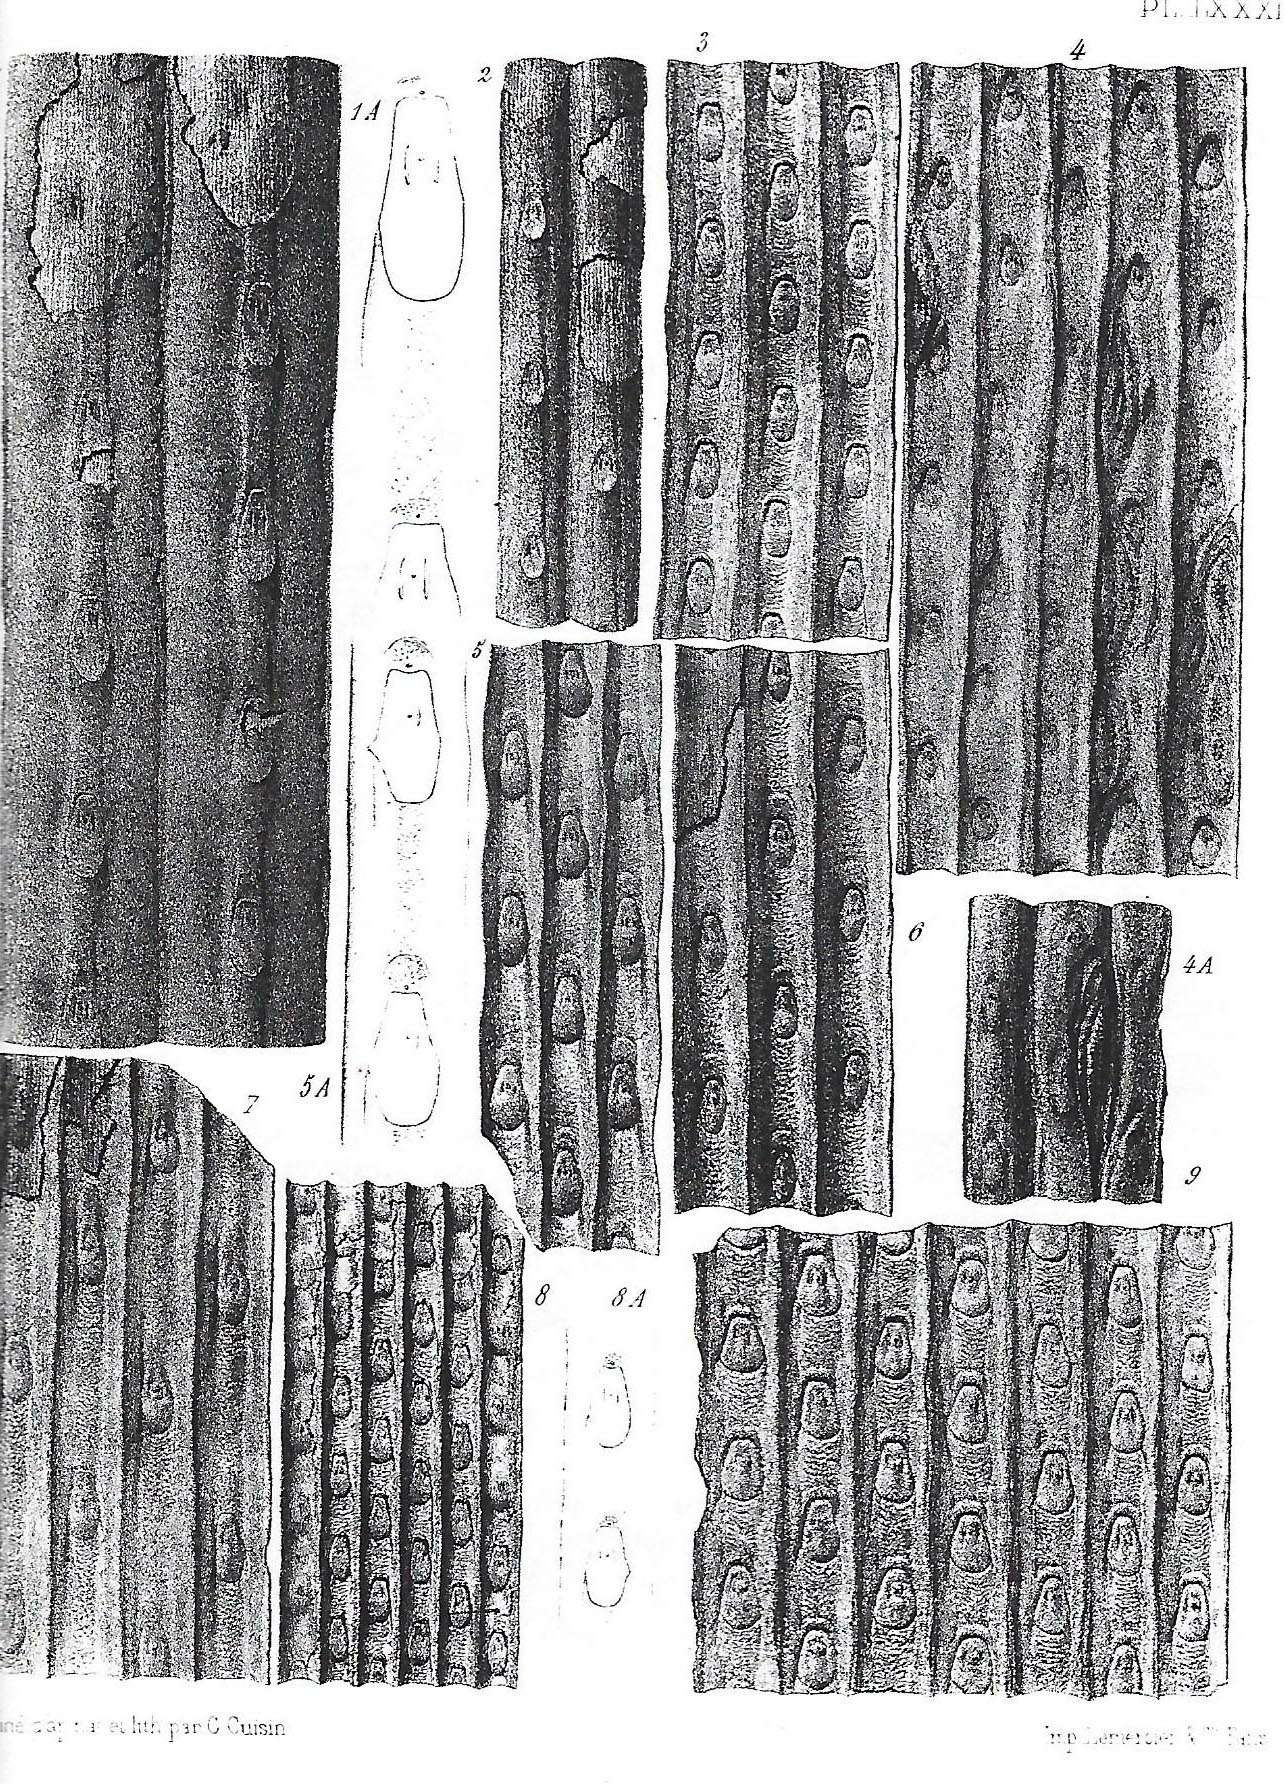 PL. LXXXI
3
4
2
1A
5
6
4A
5A
7
9
8
8A
et lith par C Cuisin
Imp Lemercier